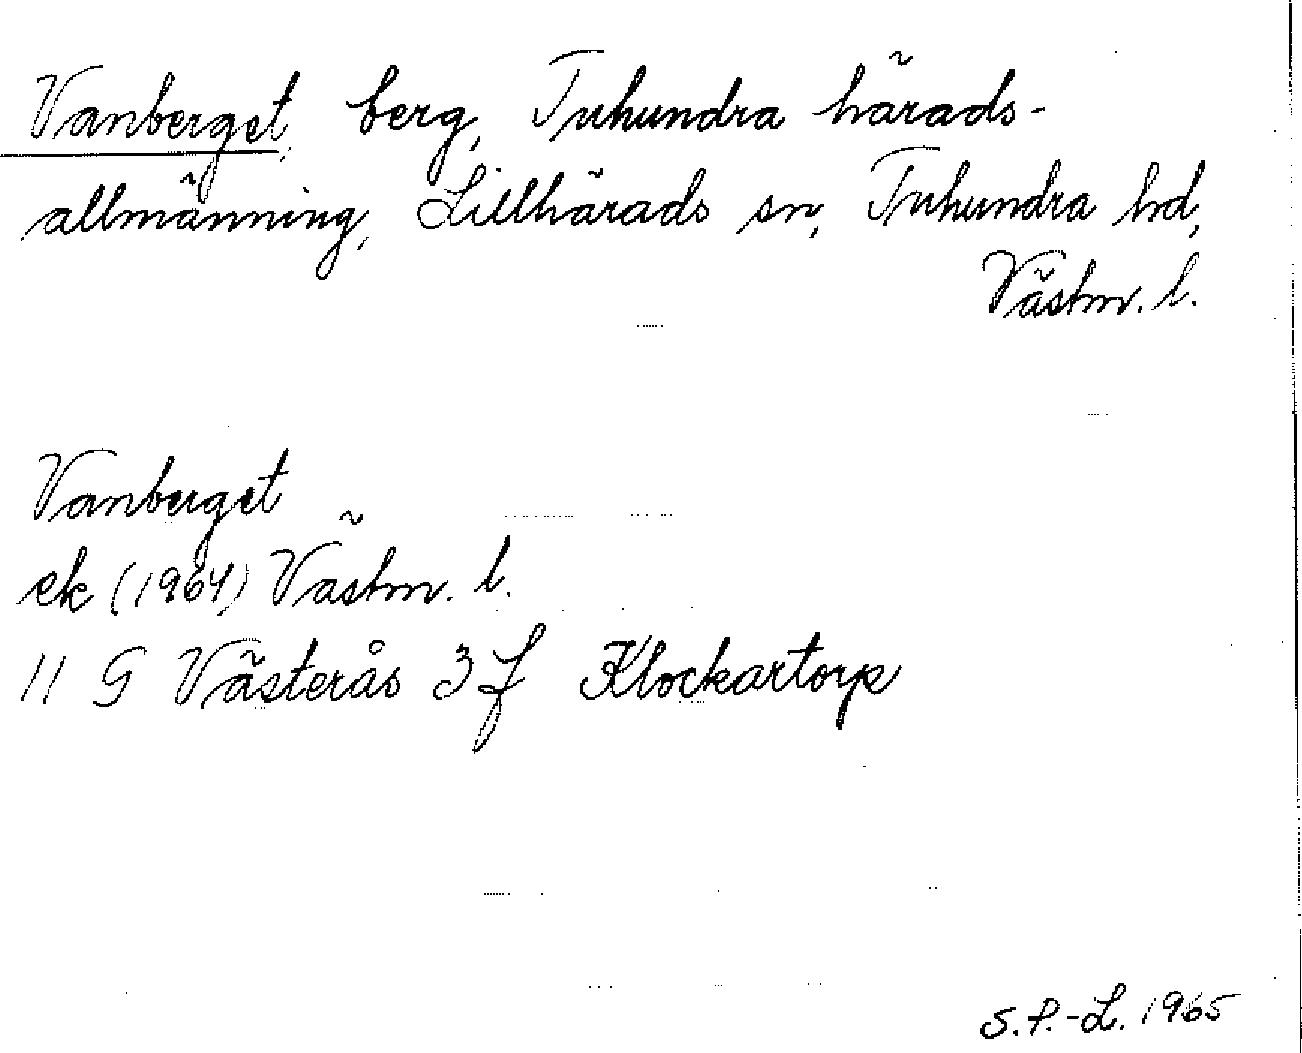 Vanberget, berg, Tuhundra härads-
allmänning, Lillhärads sn, Tuhundra hd,
Västm. l.
Vanberget
ek (1964) Västm. l.
11 G Västerås 3 f Klockartorp
S.P.-L. 1965